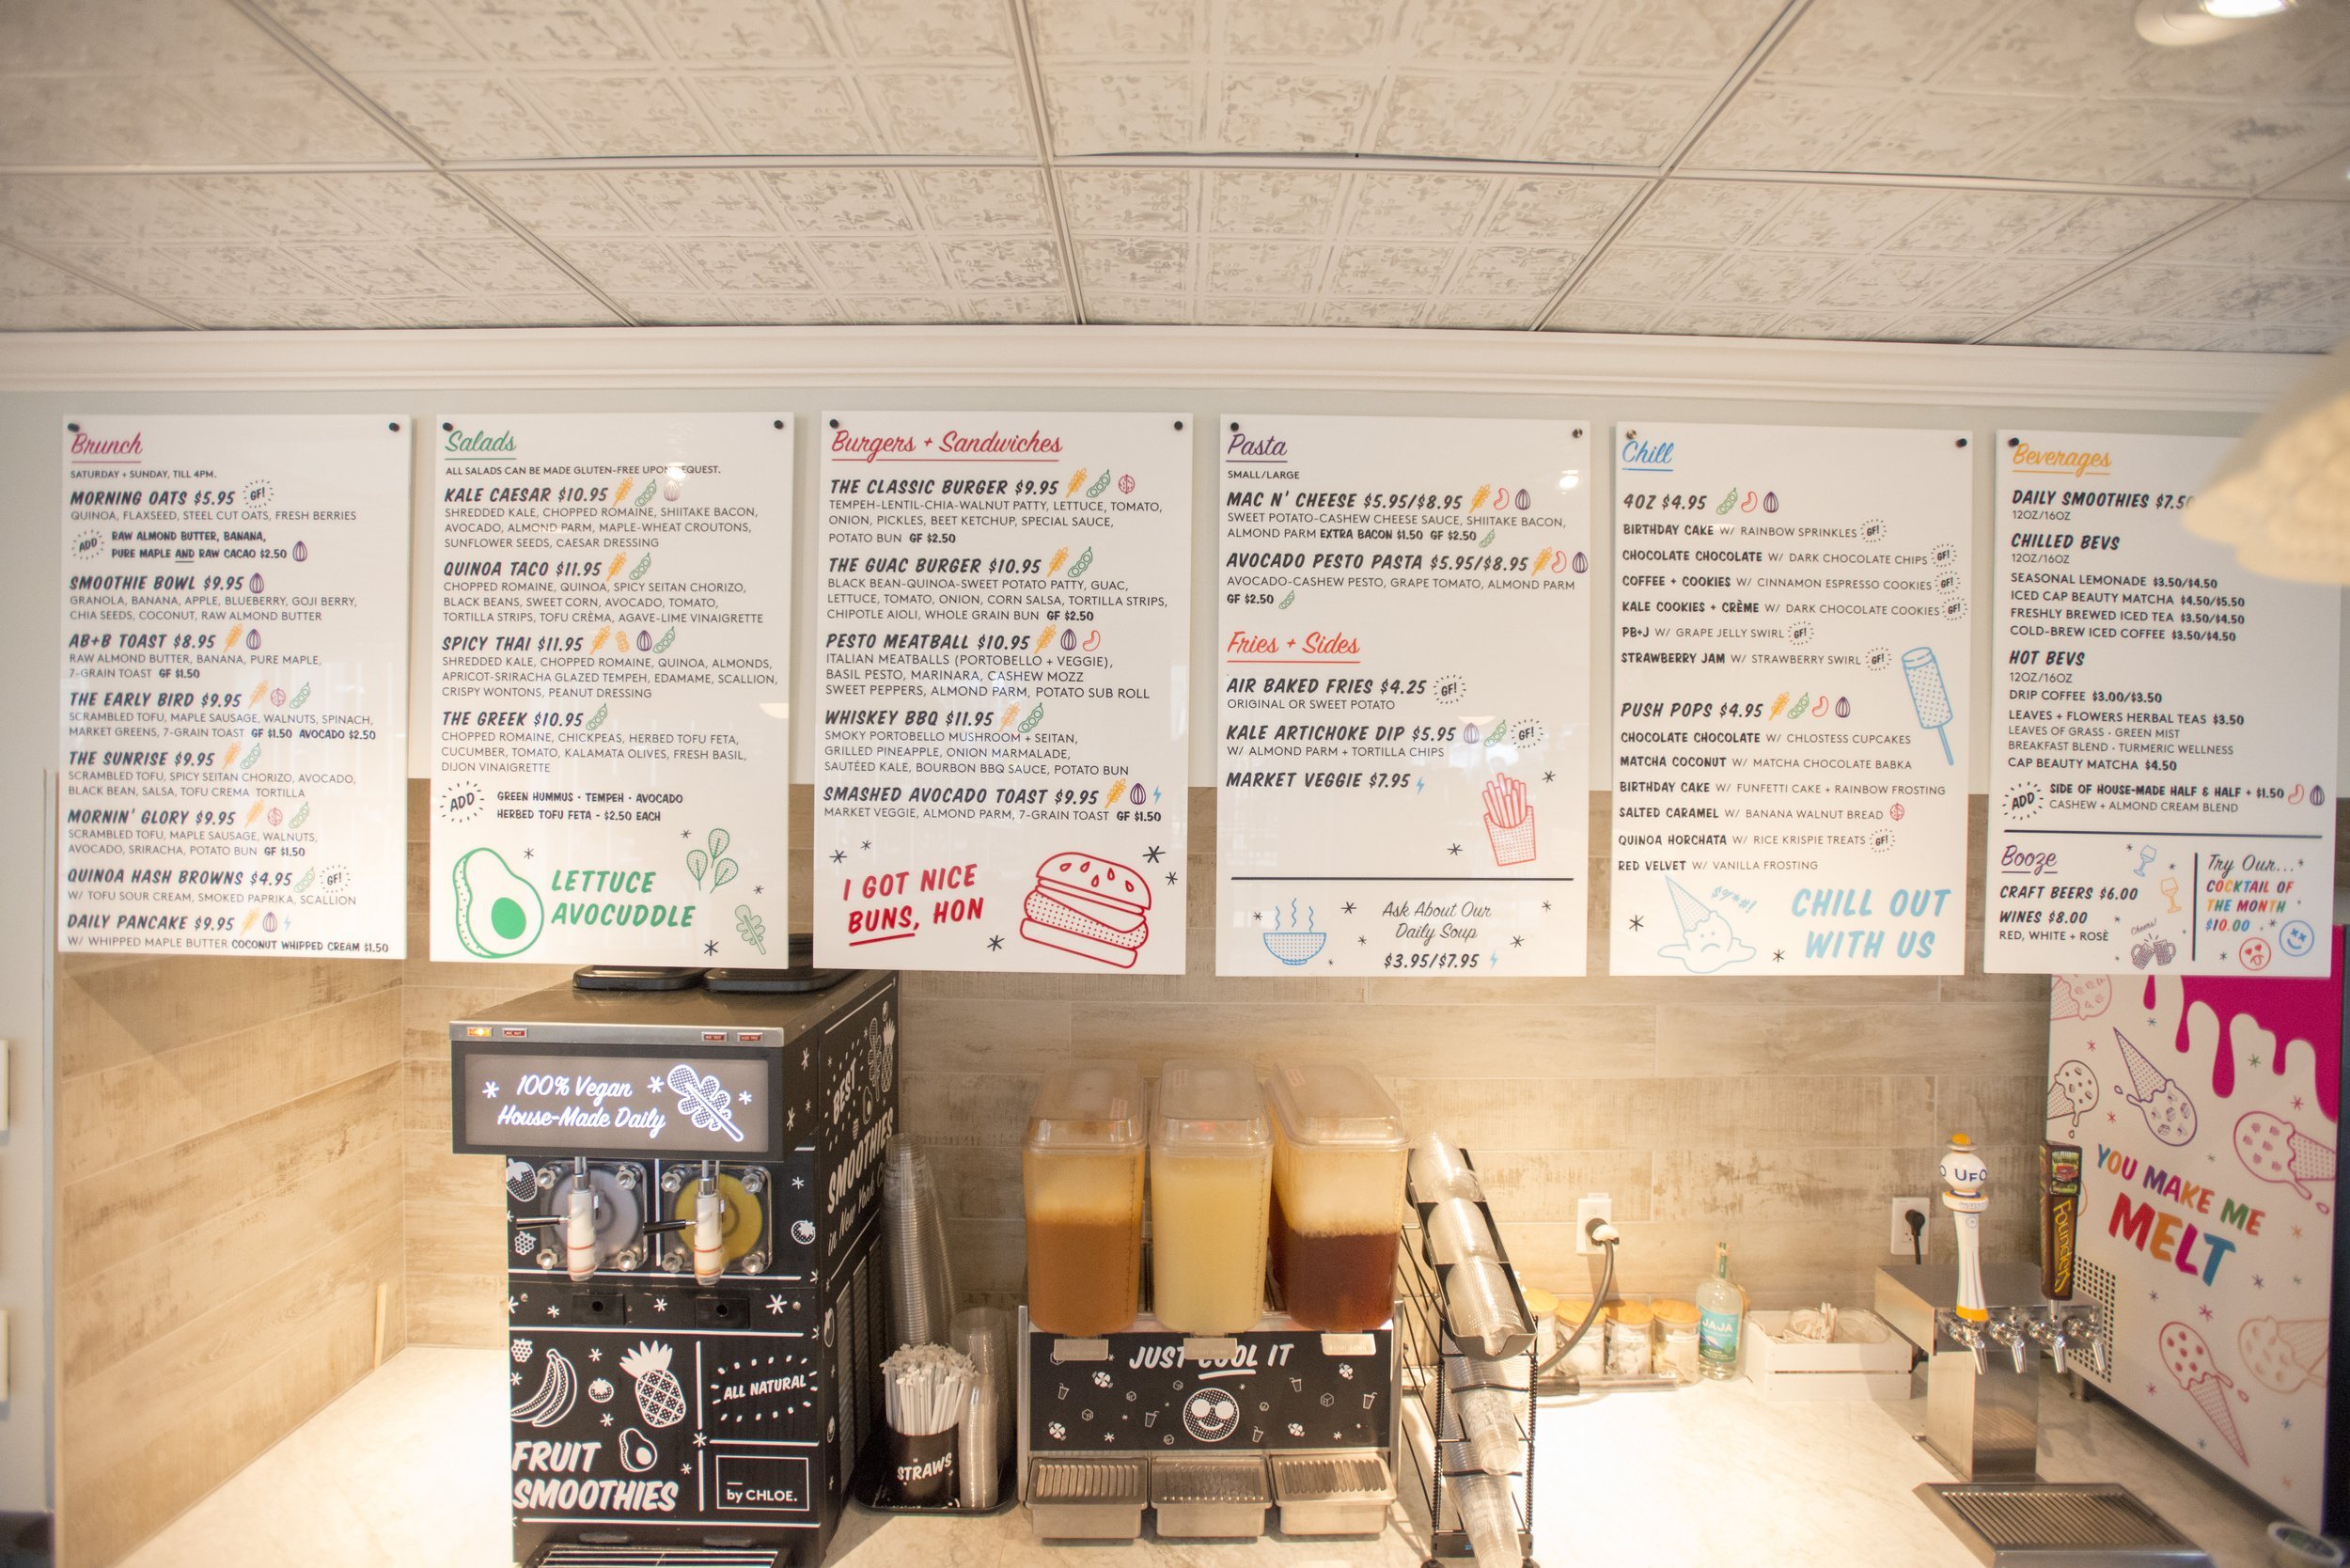 Brunch
SATURDAY + SUNDAY, TILL 4PM.
MORNING OATS $5.95 GF!
QUINOA, FLAXSEED, STEEL CUT OATS, FRESH BERRIES
ADD
RAW ALMOND BUTTER, BANANA,
PURE MAPLE AND RAW CACAO $2.50
SMOOTHIE BOWL $9.95
GRANOLA, BANANA, APPLE, BLUEBERRY, GOJI BERRY,
CHIA SEEDS, COCONUT, RAW ALMOND BUTTER
AB+B TOAST $8.95
RAW ALMOND BUTTER, BANANA, PURE MAPLE,
7-GRAIN TOAST GF $1.50
THE EARLY BIRD $9.95
SCRAMBLED TOFU, MAPLE SAUSAGE, WALNUTS, SPINACH,
MARKET GREENS, 7-GRAIN TOAST GF $1.50 AVOCADO $2.50
THE SUNRISE $9.95
SCRAMBLED TOFU, SPICY SEITAN CHORIZO, AVOCADO,
BLACK BEAN, SALSA, TOFU CREMA TORTILLA
MORNIN' GLORY $9.95
SCRAMBLED TOFU, MAPLE SAUSAGE, WALNUTS,
AVOCADO, SRIRACHA, POTATO BUN GF $1.50
QUINOA HASH BROWNS $4.95 GF!
W/ TOFU SOUR CREAM, SMOKED PAPRIKA, SCALLION
DAILY PANCAKE $9.95
W/ WHIPPED MAPLE BUTTER COCONUT WHIPPED CREAM $1.50
Salads
ALL SALADS CAN BE MADE GLUTEN-FREE UPON REQUEST.
KALE CAESAR $10.95
SHREDDED KALE, CHOPPED ROMAINE, SHIITAKE BACON,
AVOCADO, ALMOND PARM, MAPLE-WHEAT CROUTONS,
SUNFLOWER SEEDS, CAESAR DRESSING
QUINOA TACO $11.95
CHOPPED ROMAINE, QUINOA, SPICY SEITAN CHORIZO,
BLACK BEANS, SWEET CORN, AVOCADO, TOMATO,
TORTILLA STRIPS, TOFU CRÈMA, AGAVE-LIME VINAIGRETTE
SPICY THAI $11.95
SHREDDED KALE, CHOPPED ROMAINE, QUINOA, ALMONDS,
APRICOT-SRIRACHA GLAZED TEMPEH, EDAMAME, SCALLION,
CRISPY WONTONS, PEANUT DRESSING
THE GREEK $10.95
CHOPPED ROMAINE, CHICKPEAS, HERBED TOFU FETA,
CUCUMBER, TOMATO, KALAMATA OLIVES, FRESH BASIL,
DIJON VINAIGRETTE
ADD
GREEN HUMMUS · TEMPEH · AVOCADO
HERBED TOFU FETA - $2.50 EACH
LETTUCE
AVOCUDDLE
Burgers + Sandwiches
THE CLASSIC BURGER $9.95
TEMPEH-LENTIL-CHIA-WALNUT PATTY, LETTUCE, TOMATO,
ONION, PICKLES, BEET KETCHUP, SPECIAL SAUCE,
POTATO BUN GF $2.50
THE GUAC BURGER $10.95
BLACK BEAN-QUINOA-SWEET POTATO PATTY, GUAC,
LETTUCE, TOMATO, ONION, CORN SALSA, TORTILLA STRIPS,
CHIPOTLE AIOLI, WHOLE GRAIN BUN GF $2.50
PESTO MEATBALL $10.95
ITALIAN MEATBALLS (PORTOBELLO + VEGGIE),
BASIL PESTO, MARINARA, CASHEW MOZZ
SWEET PEPPERS, ALMOND PARM, POTATO SUB ROLL
WHISKEY BBQ $11.95
SMOKY PORTOBELLO MUSHROOM + SEITAN,
GRILLED PINEAPPLE, ONION MARMALADE,
SAUTÉED KALE, BOURBON BBQ SAUCE, POTATO BUN
SMASHED AVOCADO TOAST $9.95
MARKET VEGGIE, ALMOND PARM, 7-GRAIN TOAST GF $1.50
I GOT NICE
BUNS, HON
Pasta
SMALL/LARGE
MAC N' CHEESE $5.95/$8.95
SWEET POTATO-CASHEW CHEESE SAUCE, SHIITAKE BACON,
ALMOND PARM EXTRA BACON $1.50 GF $2.50
AVOCADO PESTO PASTA $5.95/$8.95
AVOCADO-CASHEW PESTO, GRAPE TOMATO, ALMOND PARM
GF $2.50
Fries + Sides
AIR BAKED FRIES $4.25 GF!
ORIGINAL OR SWEET POTATO
KALE ARTICHOKE DIP $5.95 GF!
W/ ALMOND PARM + TORTILLA CHIPS
MARKET VEGGIE $7.95
Ask About Our
Daily Soup
$3.95/$7.95
Chill
4OZ $4.95
BIRTHDAY CAKE W/ RAINBOW SPRINKLES GF!
CHOCOLATE CHOCOLATE W/ DARK CHOCOLATE CHIPS GF!
COFFEE + COOKIES W/ CINNAMON ESPRESSO COOKIES GF!
KALE COOKIES + CRÈME W/ DARK CHOCOLATE COOKIES GF!
PB+J W/ GRAPE JELLY SWIRL GF!
STRAWBERRY JAM W/ STRAWBERRY SWIRL GF!
PUSH POPS $4.95
CHOCOLATE CHOCOLATE W/ CHLOSTESS CUPCAKES
MATCHA COCONUT W/ MATCHA CHOCOLATE BABKA
BIRTHDAY CAKE W/ FUNFETTI CAKE + RAINBOW FROSTING
SALTED CARAMEL W/ BANANA WALNUT BREAD
QUINOA HORCHATA W/ RICE KRISPIE TREATS GF!
RED VELVET W/ VANILLA FROSTING
CHILL OUT
WITH US
Beverages
DAILY SMOOTHIES $7.50
12OZ/16OZ
CHILLED BEVS
12OZ/16OZ
SEASONAL LEMONADE $3.50/$4.50
ICED CAP BEAUTY MATCHA $4.50/$5.50
FRESHLY BREWED ICED TEA $3.50/$4.50
COLD-BREW ICED COFFEE $3.50/$4.50
HOT BEVS
12OZ/16OZ
DRIP COFFEE $3.00/$3.50
LEAVES + FLOWERS HERBAL TEAS $3.50
LEAVES OF GRASS · GREEN MIST
BREAKFAST BLEND · TURMERIC WELLNESS
CAP BEAUTY MATCHA $4.50
ADD
SIDE OF HOUSE-MADE HALF & HALF + $1.50
CASHEW + ALMOND CREAM BLEND
Booze
CRAFT BEERS $6.00
WINES $8.00
RED, WHITE + ROSÈ
Cheers!
Try Our...
COCKTAIL OF
THE MONTH
$10.00
100% Vegan
House-Made Daily
BEST
SMOOTHIES
in New York
ALL NATURAL
FRUIT
SMOOTHIES
by CHLOE.
STRAWS
JUST COOL IT
JAJA
UFO
Founders
YOU MAKE ME
MELT